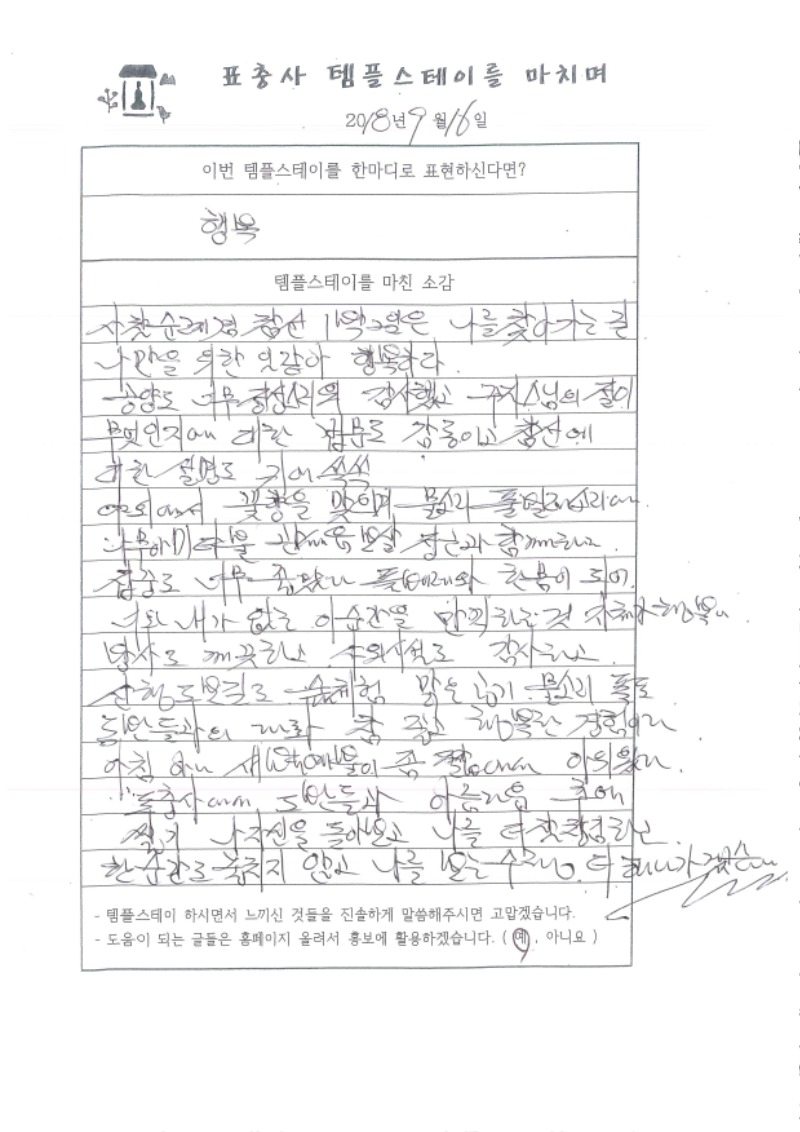 표충사 템플스테이를 마치며
2018년 9월 16일
이번 템플스테이를 한마디로 표현하신다면?
행복
템플스테이를 마친 소감
참선 나를 찾아가는 길
나만을 위한 행복하다.
공양도 너무 감사했고 주지스님의 절이
무엇인지에 대한 감동이고 참선에
대한 설명도 귀에 쏙쏙
꽃향을 맡으며 물소리 풀벌레소리에
나무아미타불 관세음보살 함께하고.
집중도 너무 좁았다 풀벌레와 한몸이 되어.
너와 내가 없는 이순간을 만끽하는 것 자체가 행복이
방사도 깨끗하고 감사하고.
산행 숲체험 맑은 공기 물소리 폭포
도반들과의 대화 참 좋고 행복한 경험이다
아침 새벽예불이 좀 짧아서 아쉬웠다.
표충사에서 도반들과 아름다운 추억
나 자신을 돌아보고 나를 더
한 순간도 놓치지 않고 나를 보는 더 해나가겠습니다
- 템플스테이 하시면서 느끼신 것들을 진솔하게 말씀해주시면 고맙겠습니다.
- 도움이 되는 글들은 홈페이지 올려서 홍보에 활용하겠습니다. ( 예 , 아니요 )